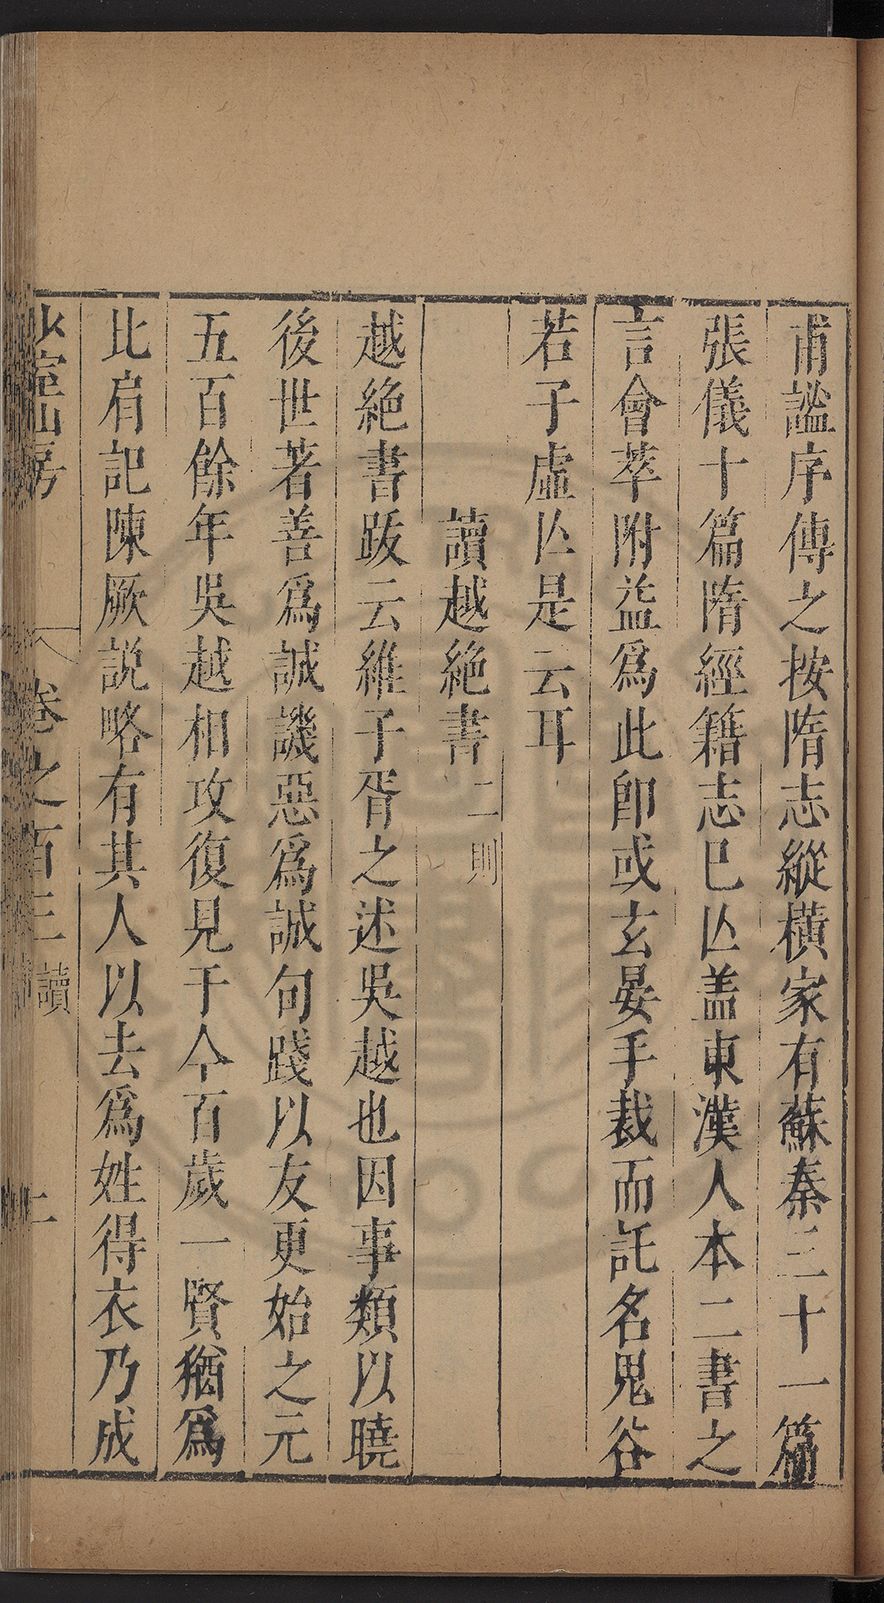 甫謐序傳之按隋志縱橫家有蘇秦三十一篇
張儀十篇隋經籍志已亾盖東漢人本二書之
言會萃附益爲此卽或玄晏手裁而託名鬼谷
若子虛亾是云耳
讀越絶書二則
越絶書跋云維子胥之述吳越也因事類以曉
後世著善爲誠譏惡爲誠句踐以友更始之元
五百餘年吳越相攻復見于今百歲一賢猶爲
比肩記陳厥説略有其人以去爲姓得衣乃成
少室山房 卷之百三 讀 上